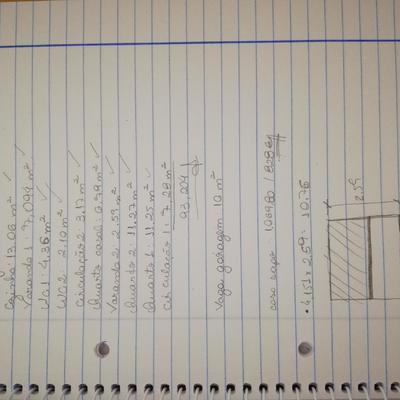 Cozinha 13.06 m² ✓
Varanda 1: 7,094 m² ✓
WC1: 4.36 m² ✓
WC2: 2.10 m² ✓
circulação 2: 3.17 m² ✓
Quarto casal: m² ✓
Varanda 2: 2.59 m² ✓
Quarto 2: 11,27 m² ✓
Quarto 1: 11,25 m² ✓
circulação 1: 7,28 m²
93,204
Vaga garagem: 10 m²
• 4,151 x 2.59 = 10.75
2.59